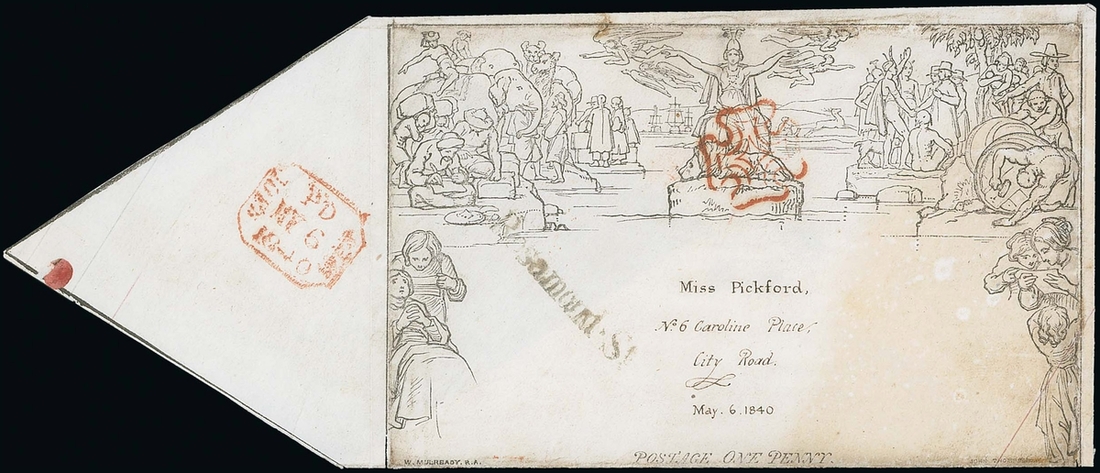 PD
MY 6
1840
Miss Pickford,
No 6 Caroline Place,
City Road.
May. 6. 1840
W. MULREADY, R.A.
POSTAGE ONE PENNY.